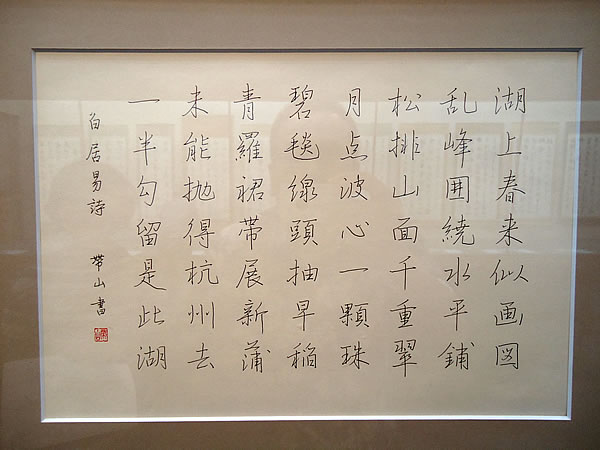 湖上春来似画図
乱峰囲繞水平鋪
松排山面千重翠
月点波心一顆珠
碧毯線頭抽早稲
青羅裙帯展新蒲
未能抛得杭州去
一半勾留是此湖
白居易詩 帯山書